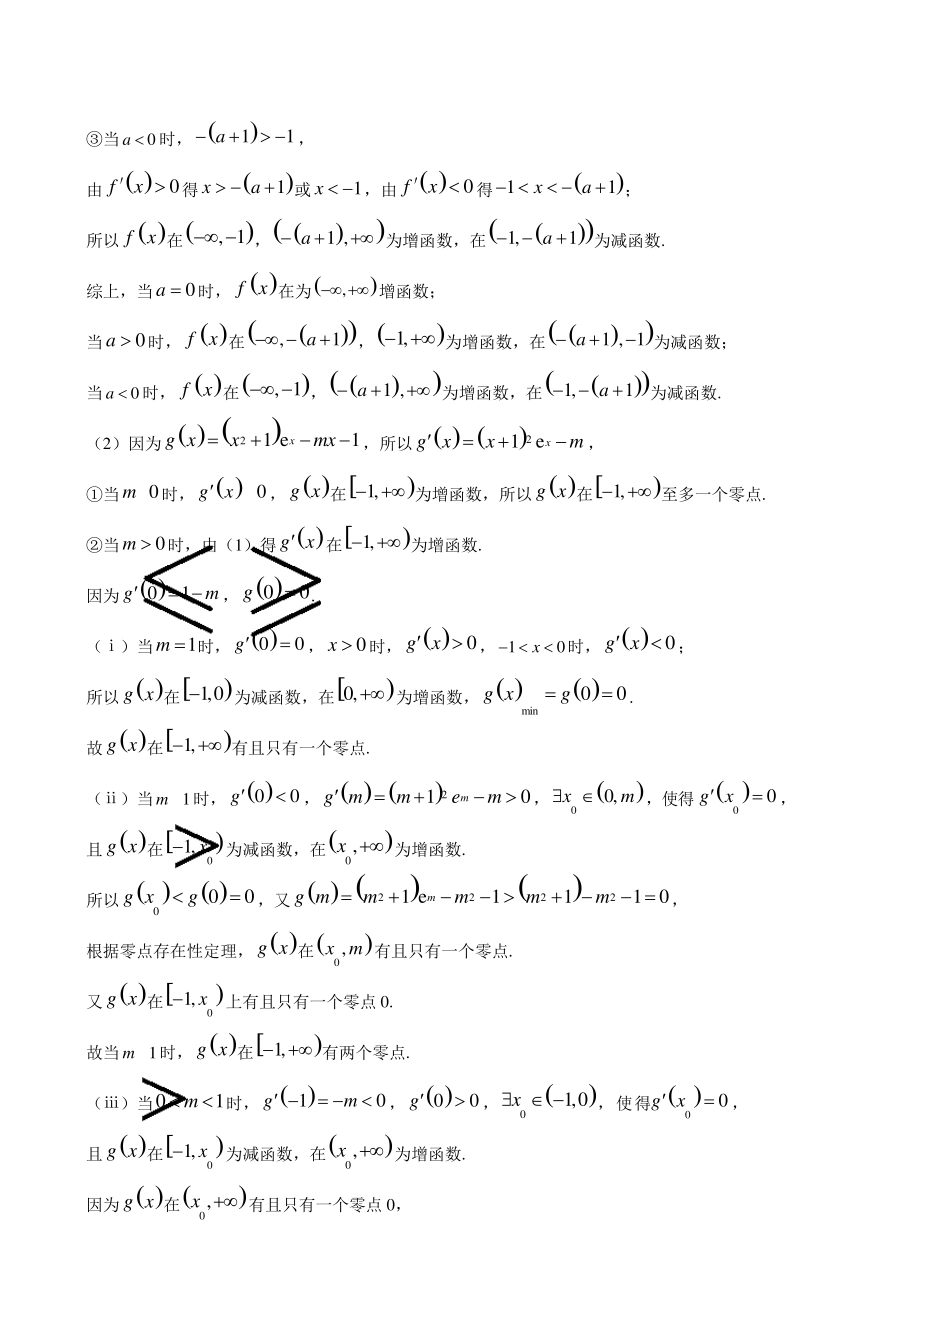 ③当a<0时，−(a+1)>−1，
由f′(x)>0得x>−(a+1)或x<−1，由f′(x)<0得−1<x<−(a+1)；
所以f(x)在(−∞,−1)，(−(a+1),+∞)为增函数，在(−1,−(a+1))为减函数.
综上，当a=0时，f(x)在为(−∞,+∞)增函数；
当a>0时，f(x)在(−∞,−(a+1))，(−1,+∞)为增函数，在(−(a+1),−1)为减函数；
当a<0时，f(x)在(−∞,−1)，(−(a+1),+∞)为增函数，在(−1,−(a+1))为减函数.
（2）因为g(x)=(x²+1)eˣ−mx−1，所以g′(x)=(x+1)²eˣ−m，
①当m 0时，g′(x) 0，g(x)在[−1,+∞)为增函数，所以g(x)在[−1,+∞)至多一个零点.
②当m>0时，由（1）得g′(x)在[−1,+∞)为增函数.
因为g′(0)=1−m，g(0)=0.
（ⅰ）当m=1时，g′(0)=0，x>0时，g′(x)>0，−1<x<0时，g′(x)<0；
所以g(x)在[−1,0)为减函数，在[0,+∞)为增函数，g(x)min=g(0)=0.
故g(x)在[−1,+∞)有且只有一个零点.
（ⅱ）当m 1时，g′(0)<0，g′(m)=(m+1)²eᵐ−m>0，∃x₀∈(0,m)，使得g′(x₀)=0，
且g(x)在[−1,x₀)为减函数，在(x₀,+∞)为增函数.
所以g(x₀)<g(0)=0，又g(m)=(m²+1)eᵐ−m²−1>(m²+1)−m²−1=0，
根据零点存在性定理，g(x)在(x₀,m)有且只有一个零点.
又g(x)在[−1,x₀)上有且只有一个零点0.
故当m 1时，g(x)在[−1,+∞)有两个零点.
（ⅲ）当0<m<1时，g′(−1)=−m<0，g′(0)>0，∃x₀∈(−1,0)，使得g′(x₀)=0，
且g(x)在[−1,x₀)为减函数，在(x₀,+∞)为增函数.
因为g(x)在(x₀,+∞)有且只有一个零点0，